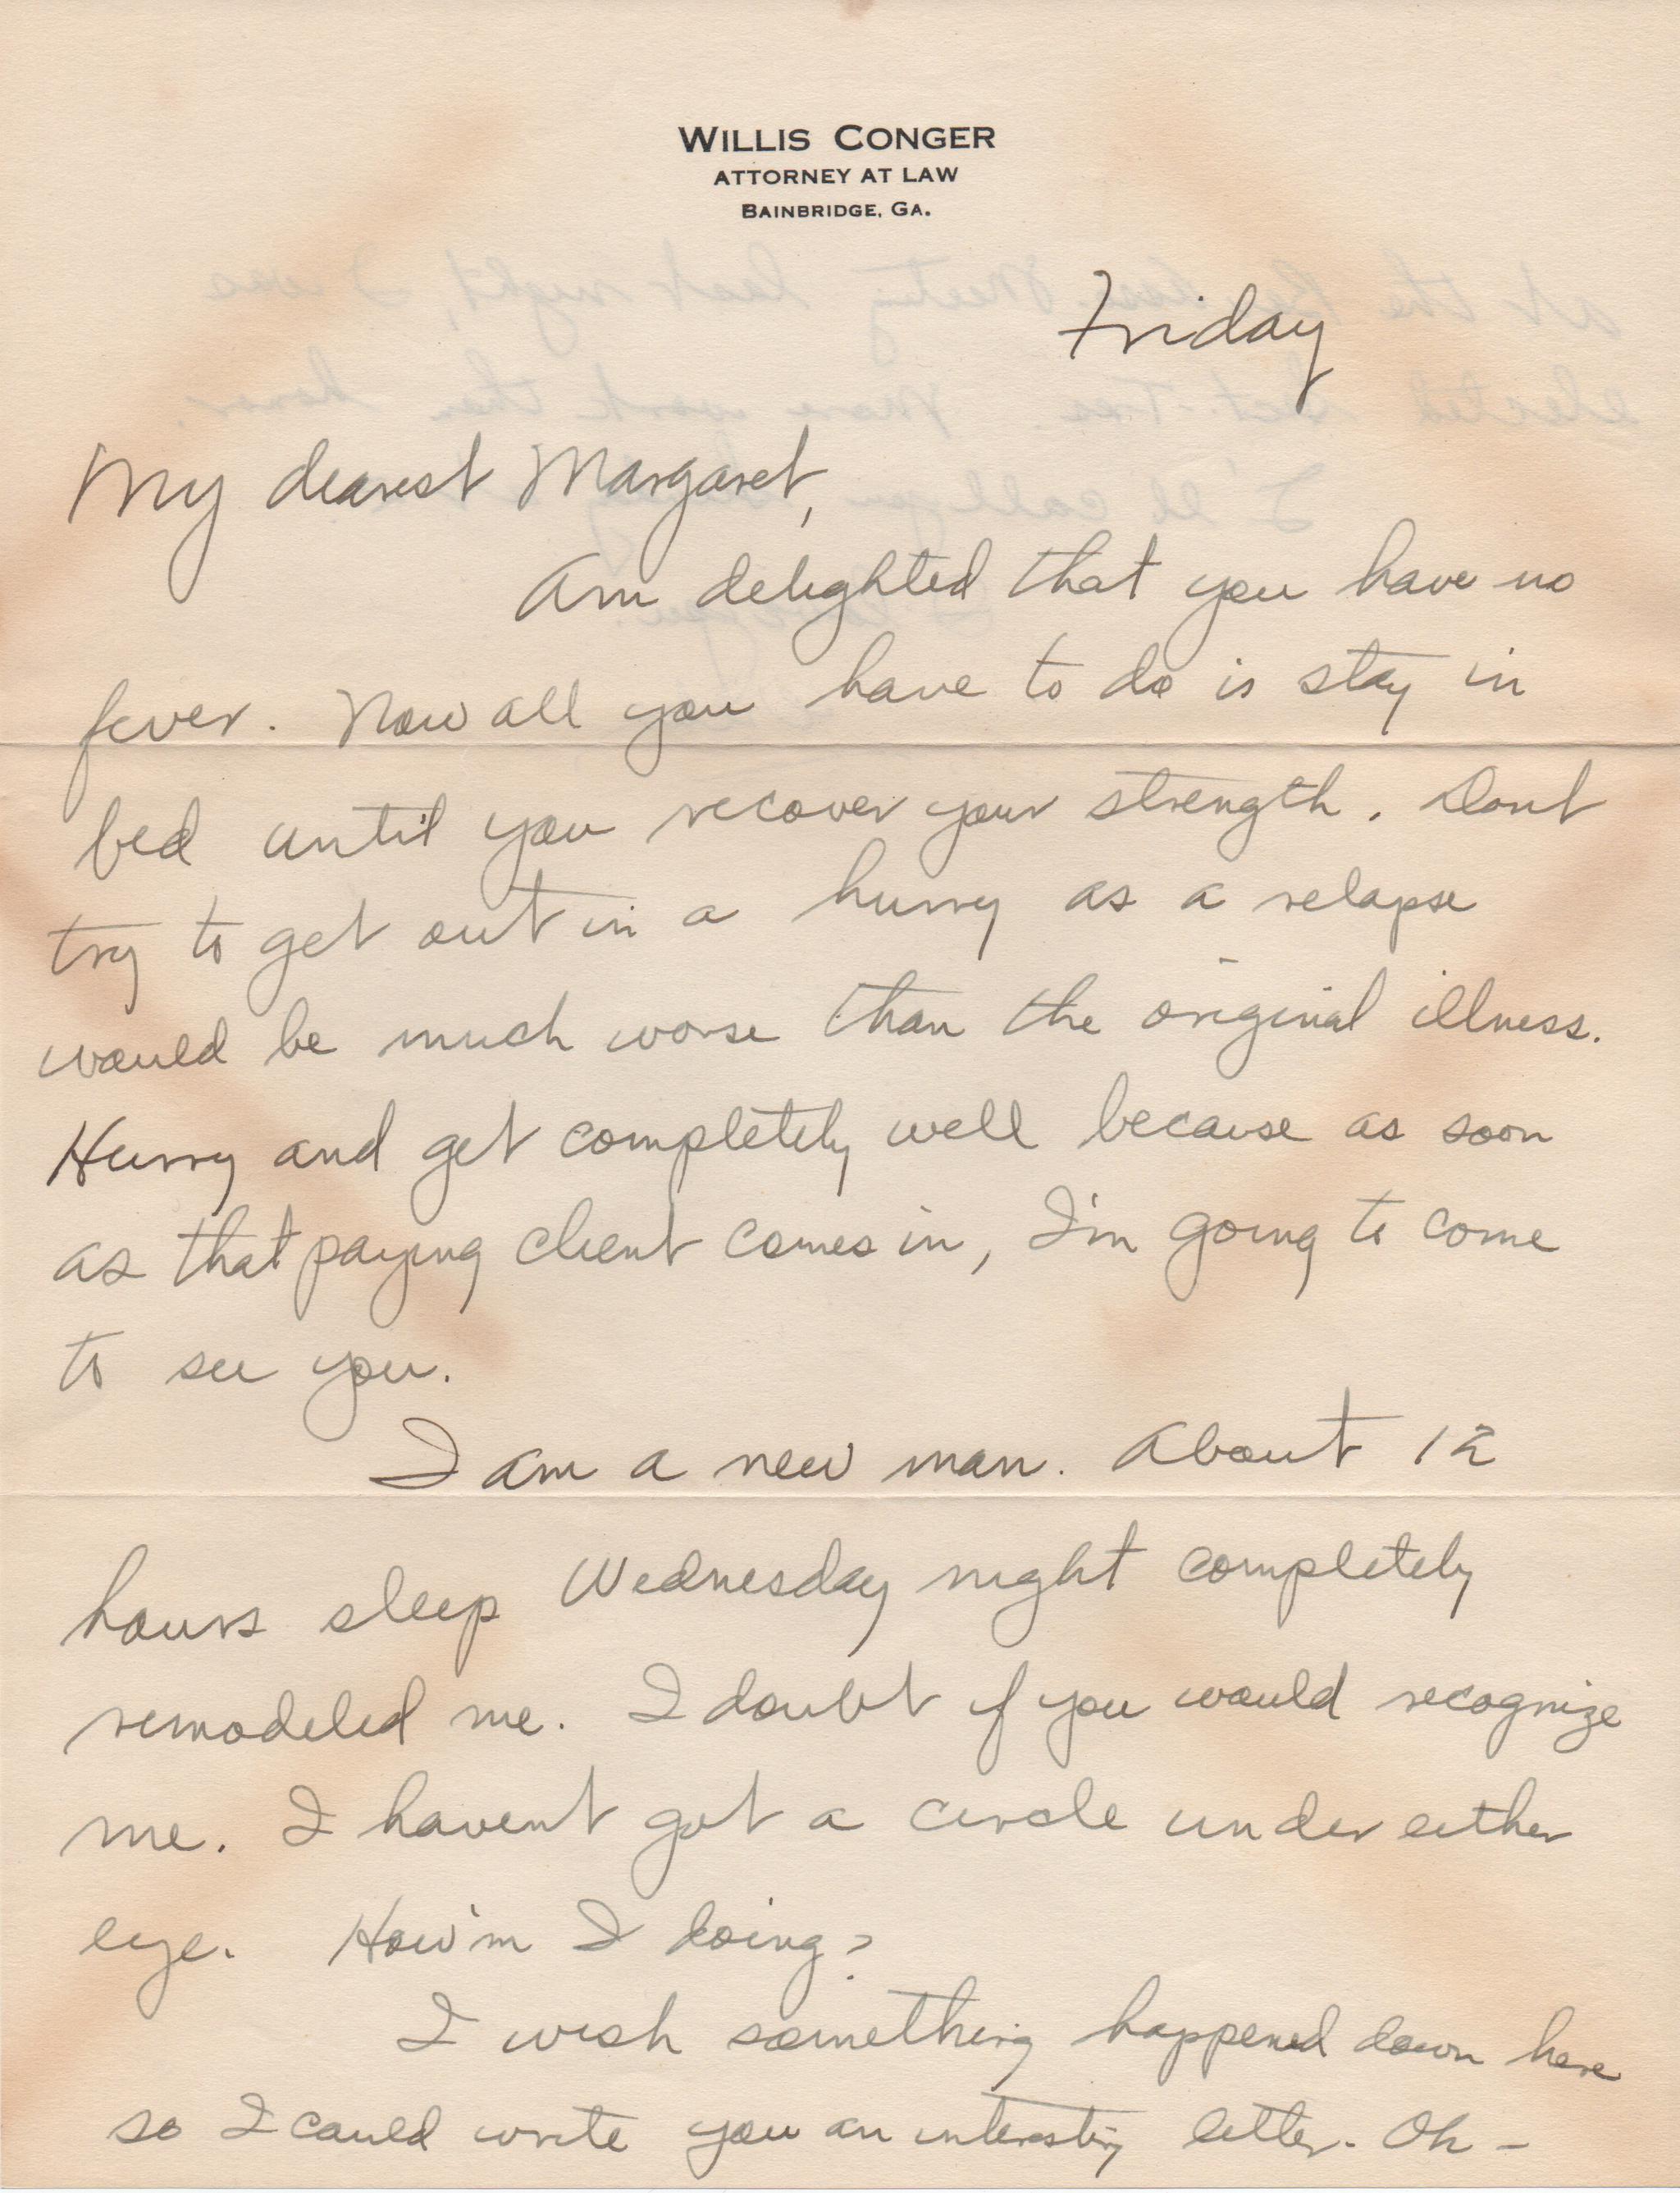 WILLIS CONGER
ATTORNEY AT LAW
BAINBRIDGE, GA.
Friday
My dearest Margaret,
Am delighted that you have no
fever. Now all you have to do is stay in
bed until you recover your strength. Dont
try to get out in a hurry as a relapse
would be much worse than the original illness.
Hurry and get completely well because as soon
as that paying client comes in, I'm going to come
to see you.
I am a new man. About 12
hours sleep Wednesday night completely
remodeled me. I doubt if you would recognize
me. I havent got a circle under either
eye. How'm I doing?
I wish something happened down here
so I could write you an interesting letter. Oh -